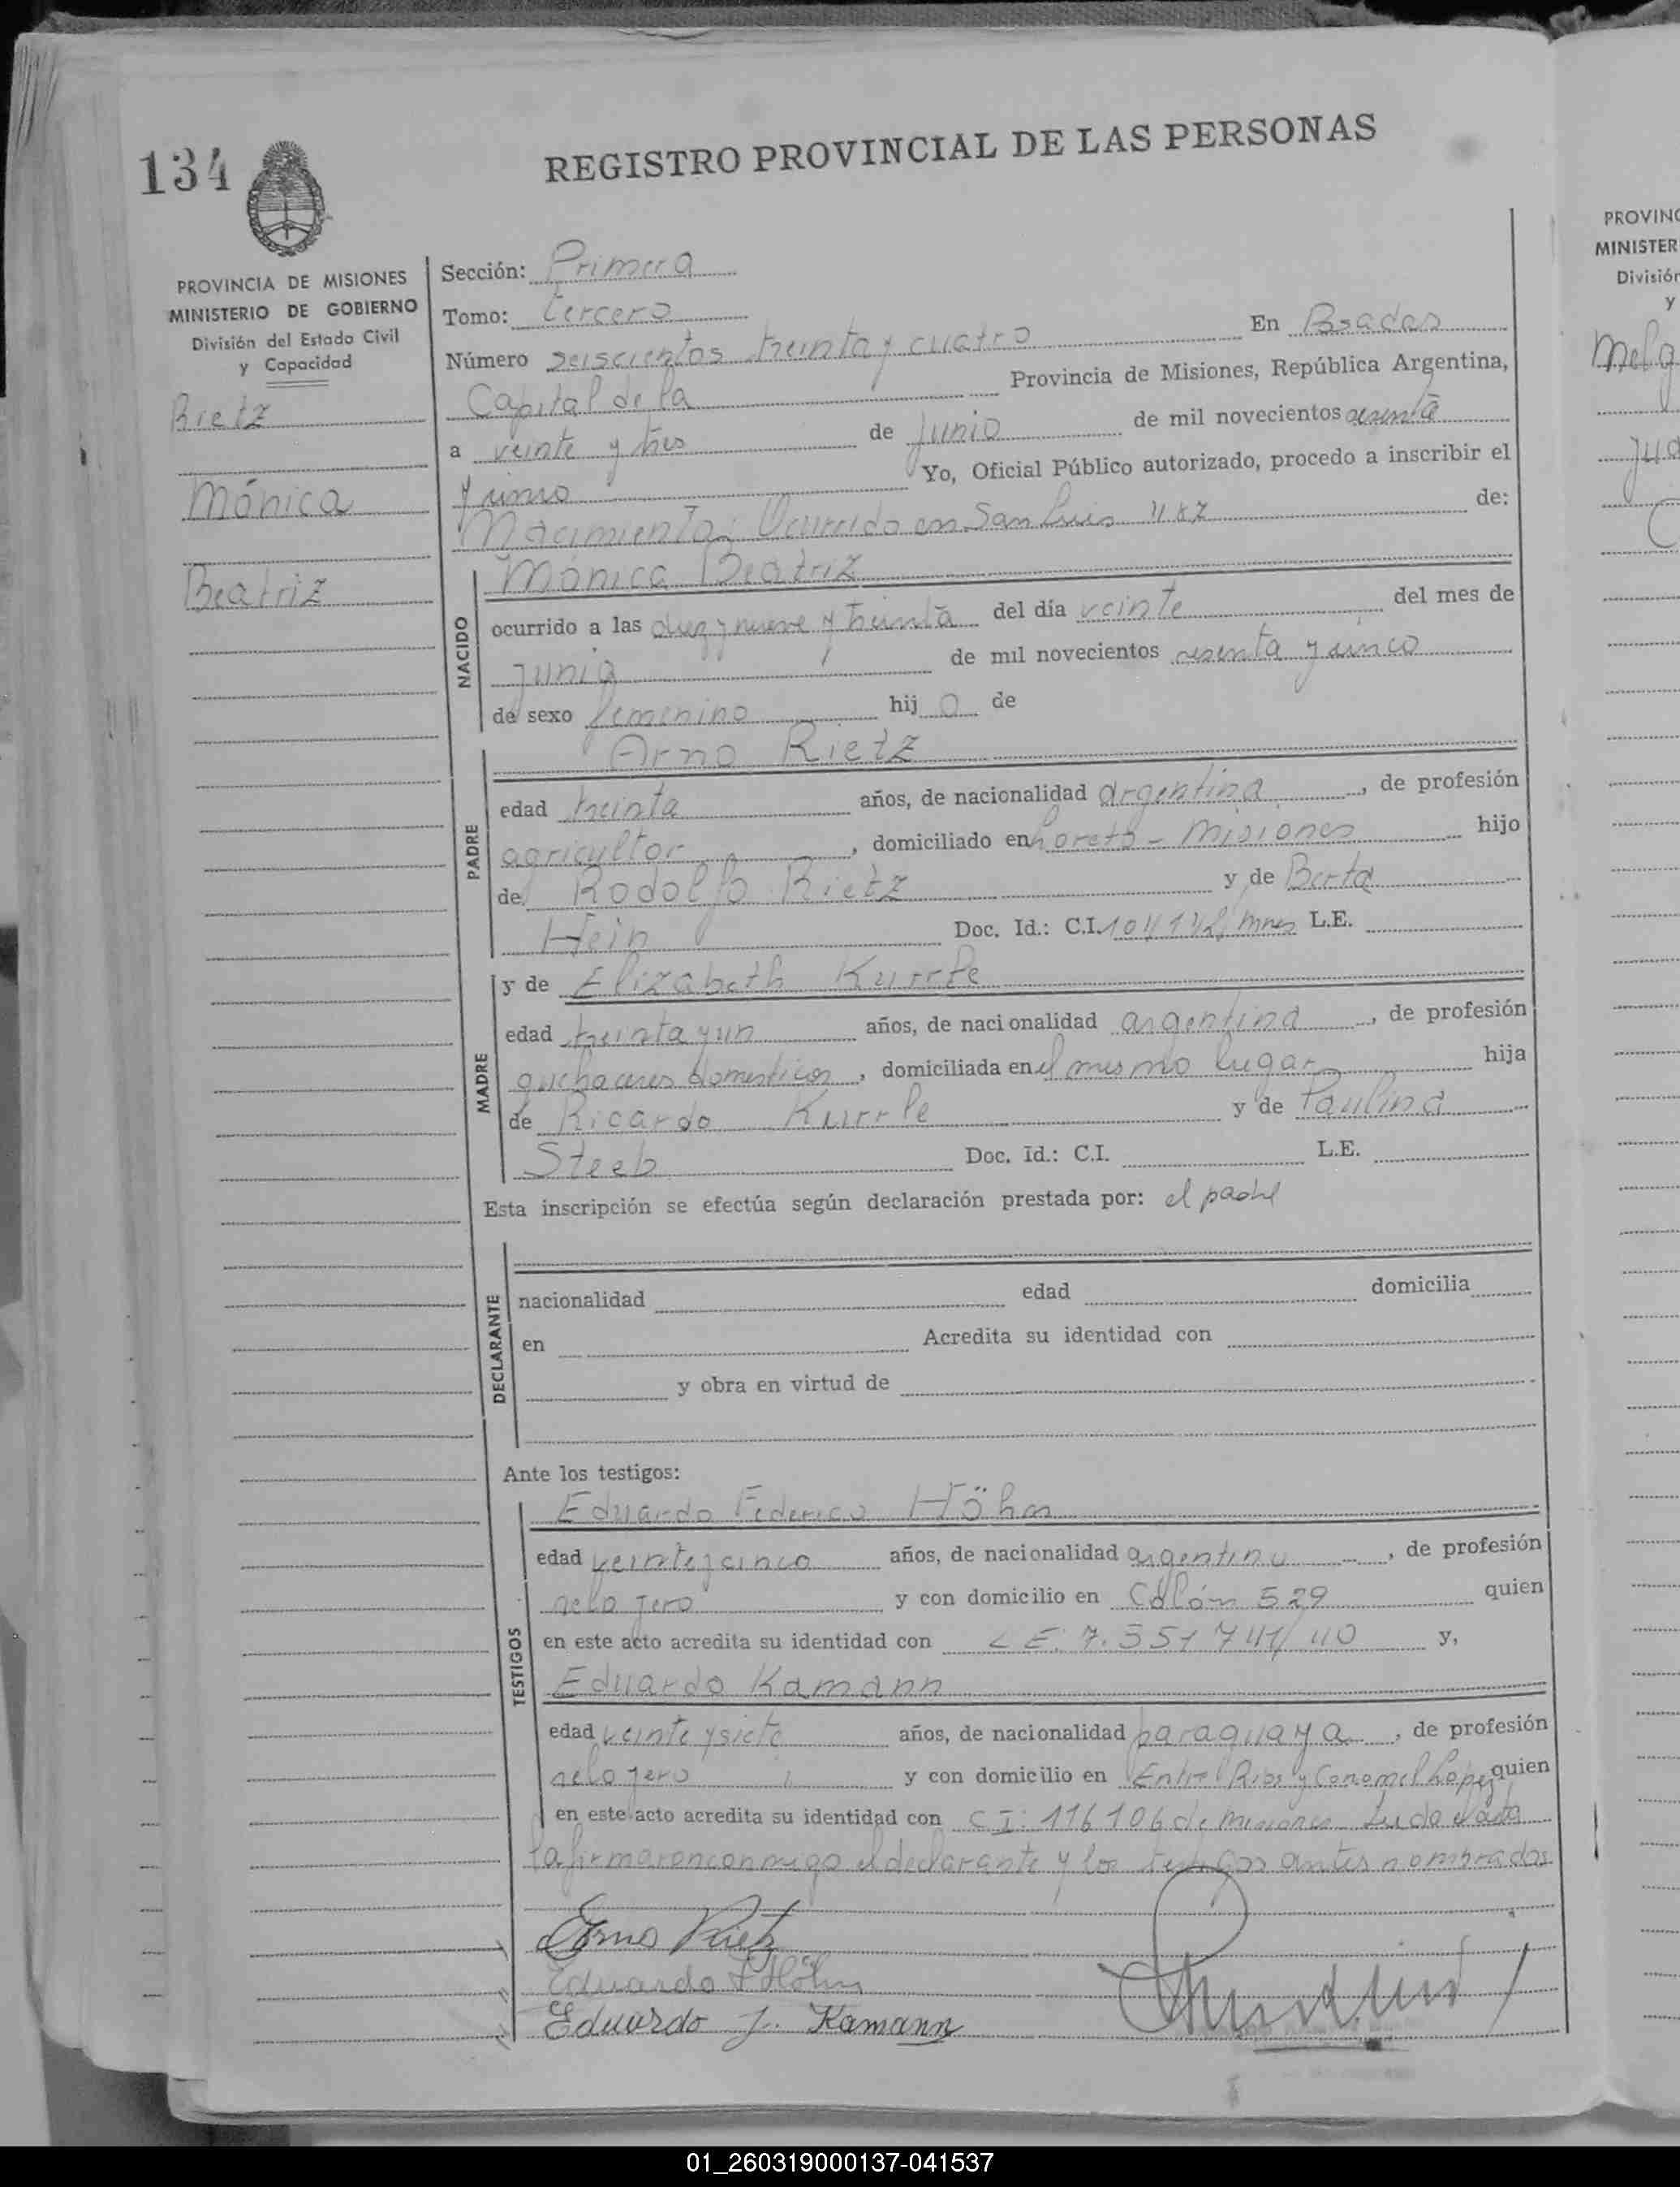 134
REGISTRO PROVINCIAL DE LAS PERSONAS
PROVINCIA DE MISIONES
MINISTERIO DE GOBIERNO
División del Estado Civil
y Capacidad
Rietz
Mónica
Beatriz
Sección: Primera
Tomo: tercero
Número seiscientos treinta y cuatro En Posadas
Capital de la Provincia de Misiones, República Argentina,
a veinte y tres de Junio de mil novecientos sesenta
y cinco Yo, Oficial Público autorizado, procedo a inscribir el
Nacimiento; Ocurrido en San Luis de:
NACIDO
Mónica Beatriz
ocurrido a las diez y nueve y treinta del día veinte del mes de
Junio de mil novecientos sesenta y cinco
de sexo femenino hij a de
PADRE
Arno Rietz
edad treinta años, de nacionalidad argentina, de profesión
agricultor, domiciliado en Loreto - Misiones hijo
de Rodolfo Rietz y de Berta
Hein Doc. Id.: C.I. L.E.
MADRE
y de Elizabeth Kurrle
edad treinta y un años, de nacionalidad argentina, de profesión
quehaceres domesticos, domiciliada en el mismo lugar hija
de Ricardo Kurrle y de Paulina
Steeb Doc. Id.: C.I. L.E.
Esta inscripción se efectúa según declaración prestada por: el padre
DECLARANTE
nacionalidad edad domicilia
en Acredita su identidad con
y obra en virtud de
Ante los testigos:
TESTIGOS
Eduardo Federico Höhn
edad veinte y cinco años, de nacionalidad argentina, de profesión
relojero y con domicilio en Colón 529 quien
en este acto acredita su identidad con L E. 7.551741/40 y,
Eduardo Kamann
edad veinte y siete años, de nacionalidad paraguaya, de profesión
relojero y con domicilio en Entre Rios y Coronel Lopez quien
en este acto acredita su identidad con C I: 116106 de misiones Leida el acta
la firmaron conmigo el declarante y los testigos antes nombrados
Arno Rietz
Eduardo F Höhn
Eduardo J. Kamann
PROVINC
MINISTER
División
y
Melg
01_260319000137-041537